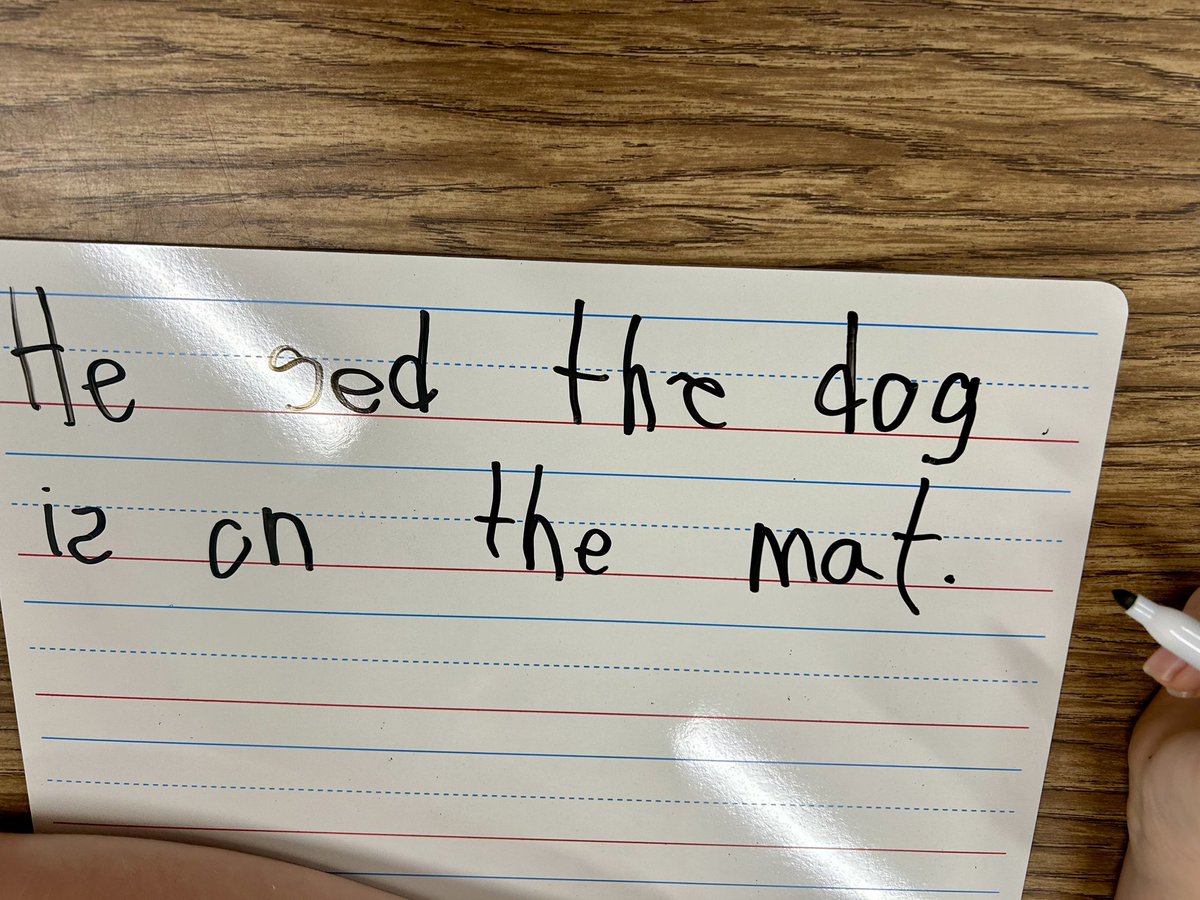 He sed the dog
is on the mat.